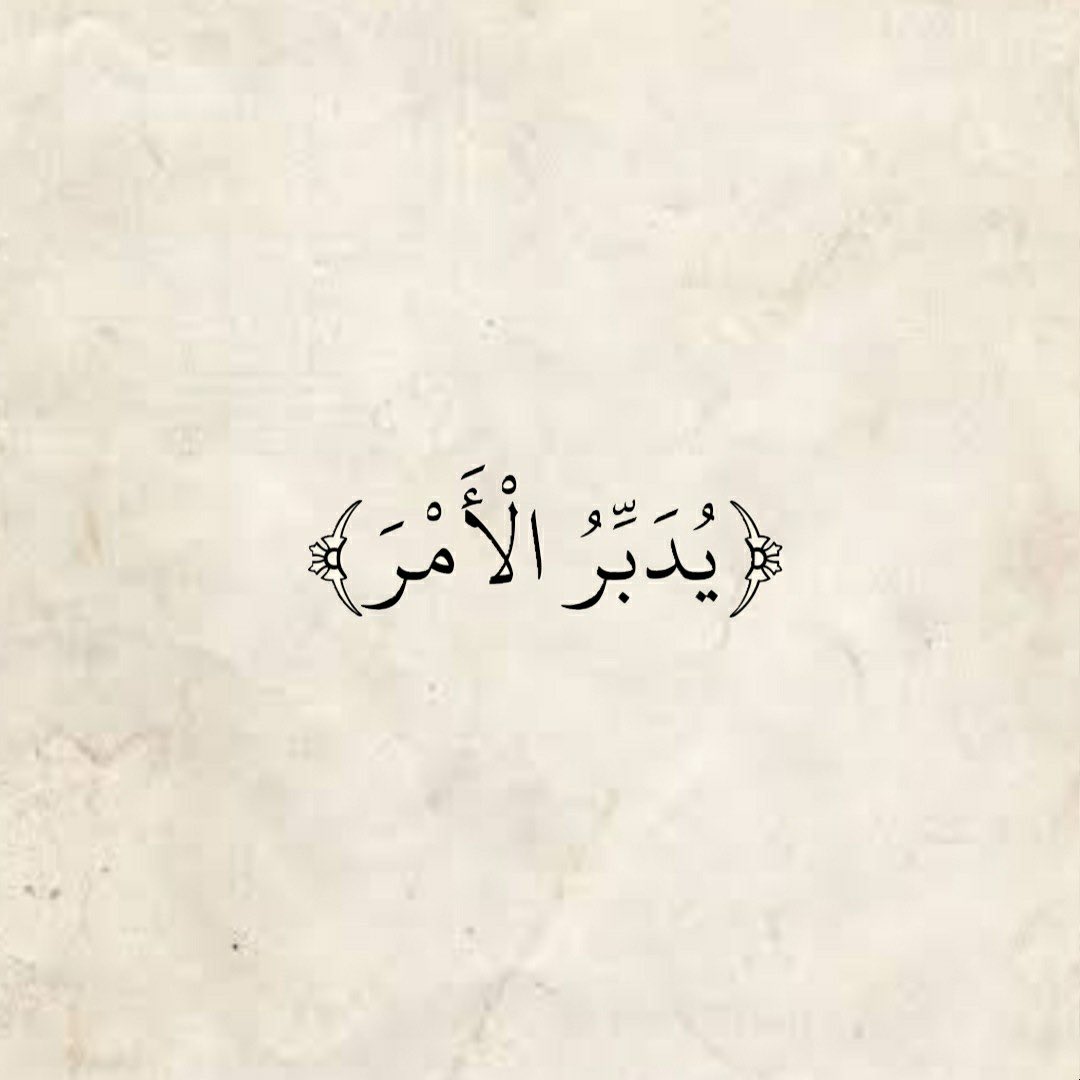 ﴿يُدَبِّرُ الْأَمْرَ﴾